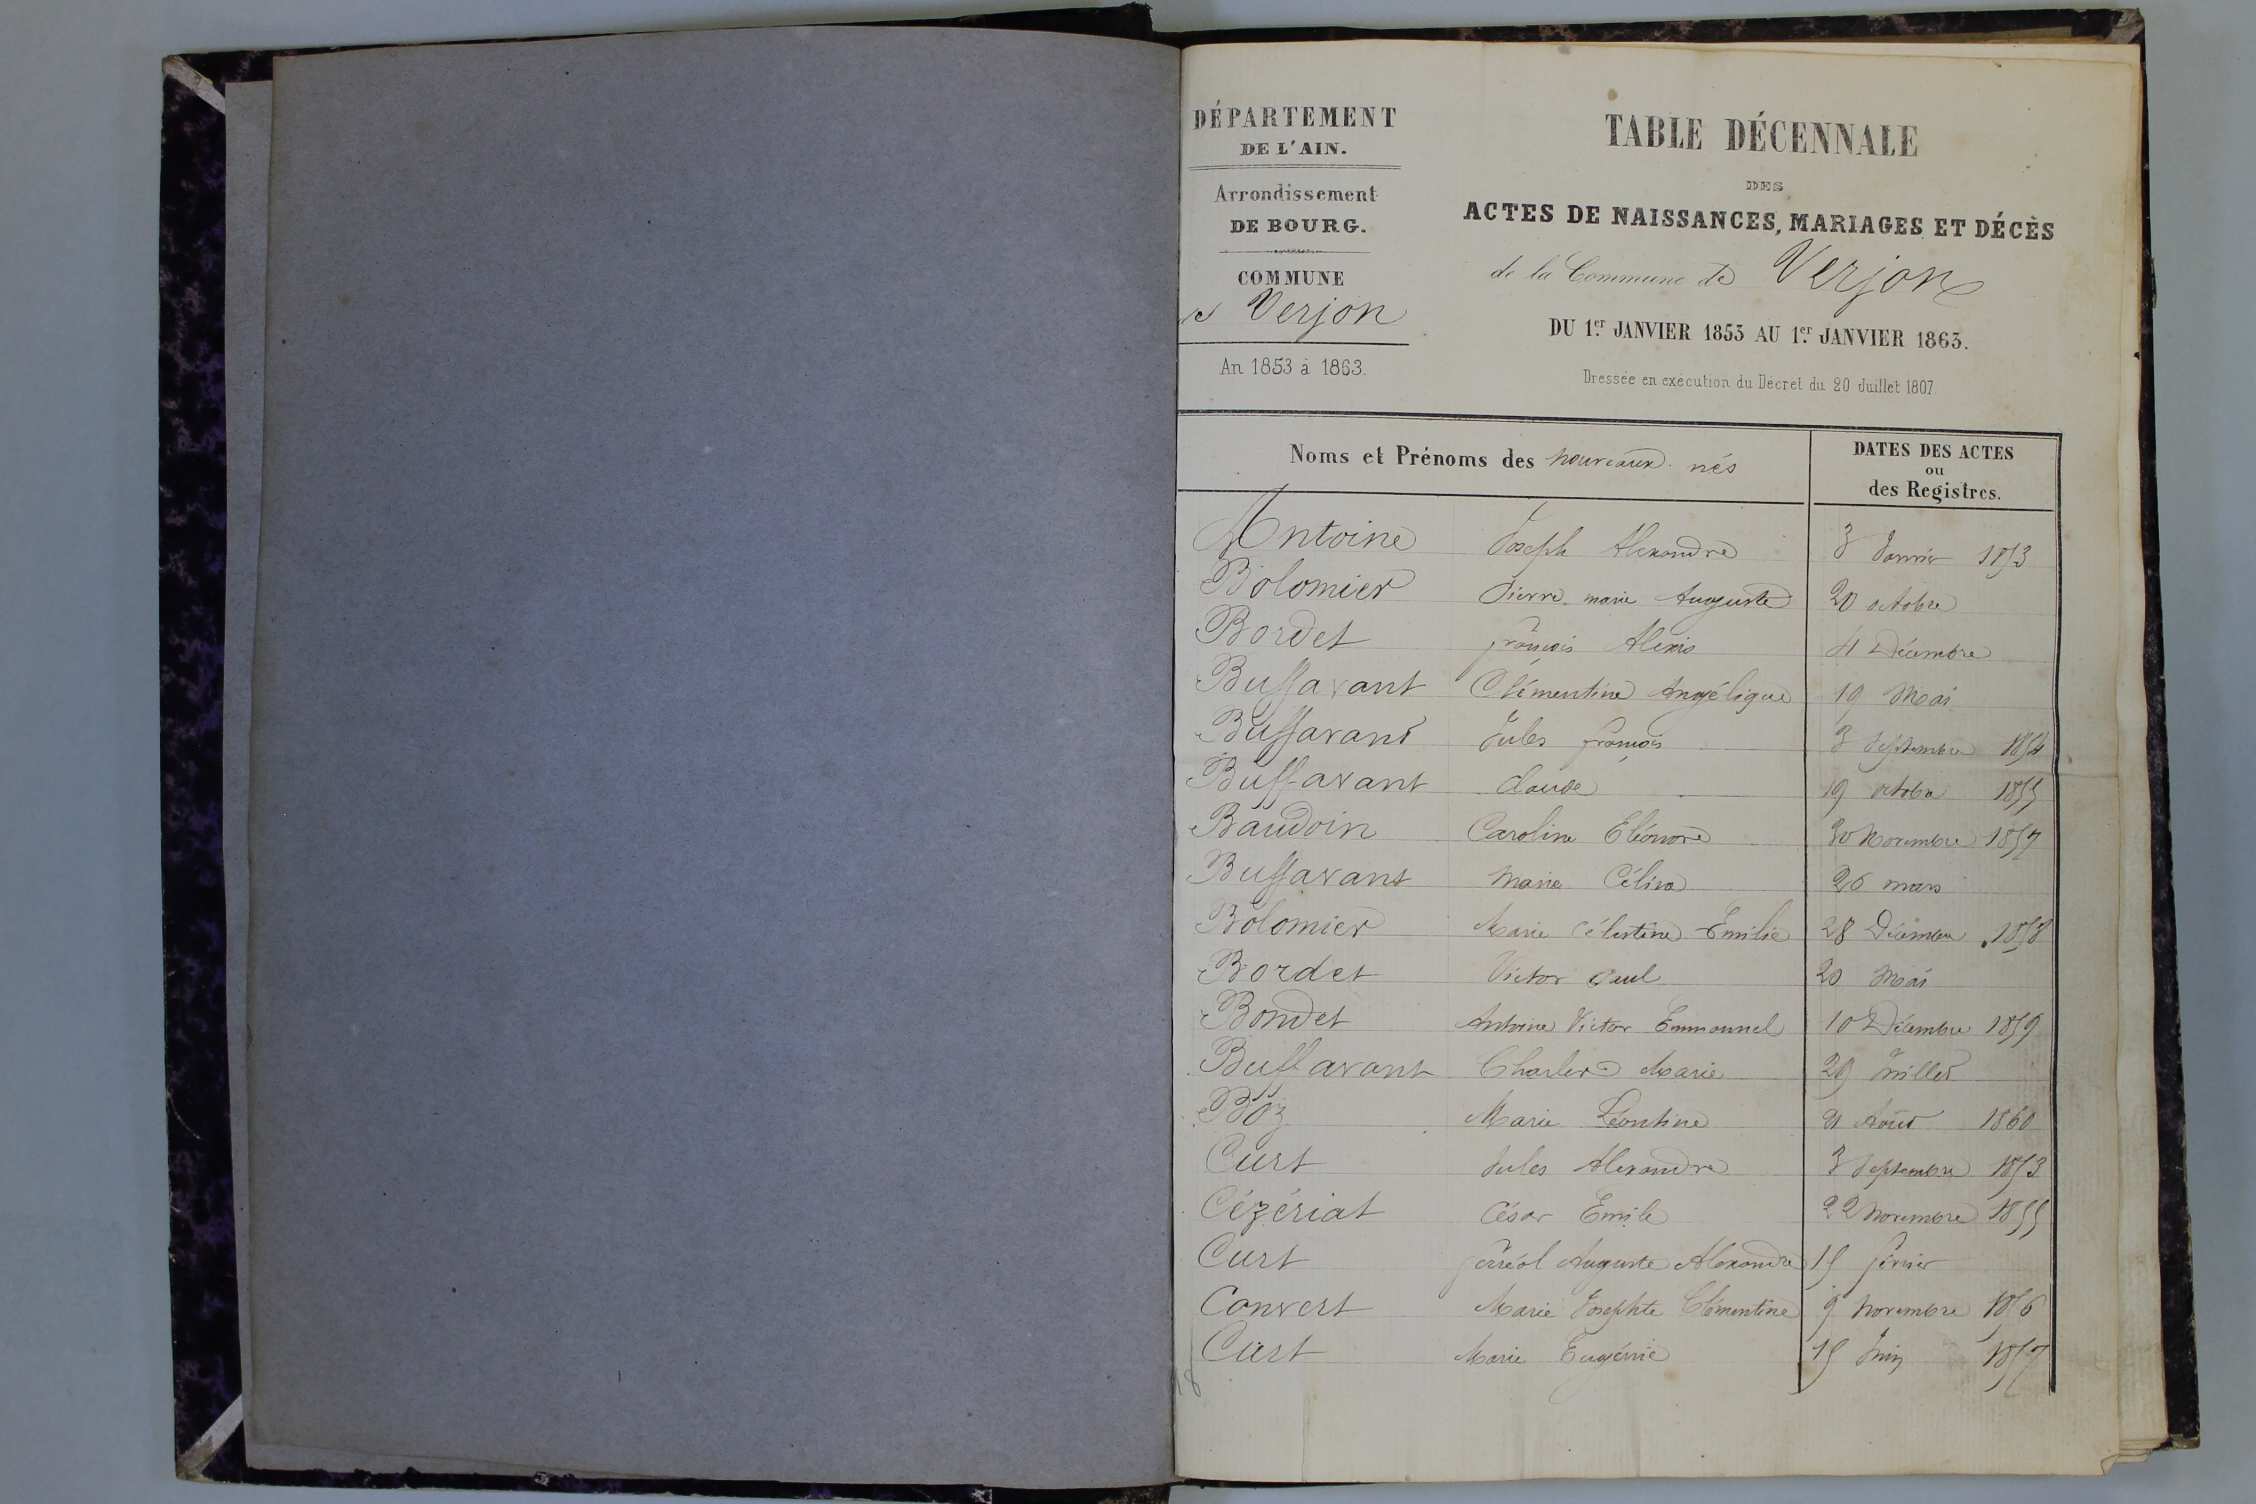 DÉPARTEMENT
DE L'AIN.
Arrondissement
DE BOURG.
COMMUNE
Verjon
An 1853 à 1863.
TABLE DÉCENNALE
DES
ACTES DE NAISSANCES, MARIAGES ET DÉCÈS
de la Commune de Verjon
DU 1er JANVIER 1853 AU 1er JANVIER 1863.
Dressée en exécution du Décret du 20 Juillet 1807
Noms et Prénoms des nouveaux nés
DATES DES ACTES
ou
des Registres.
Antoine Joseph Alexandre 3 Janvier 1853
Bolomier Pierre marie Auguste 20 octobre
Bordet françois Alexis 4 Décembre
Buffavant Clémentine Angélique 19 Mai
Buffavant Jules françois 3 Septembre 1854
Buffavant claude 19 octobre 1855
Baudoin Caroline Eléonore 30 Novembre 1857
Buffavant Marie Célina 26 mars
Bolomier Marie Célestine Emilie 28 Décembre 1858
Bordet Victor Paul 20 Mai
Bondet Antoine Victor Emmanuel 10 Décembre 1859
Buffavant Charles Marie 29 Juillet
Boz Marie Léontine Août 1860
Curt Jules Alexandre 3 Septembre 1853
Cézériat César Emile 22 Novembre 1855
Curt ferréol Auguste Alexandre 15 février
Convert Marie Josephte Clémentine 9 Novembre 1856
Curt Marie Eugénie 15 Juin 1857